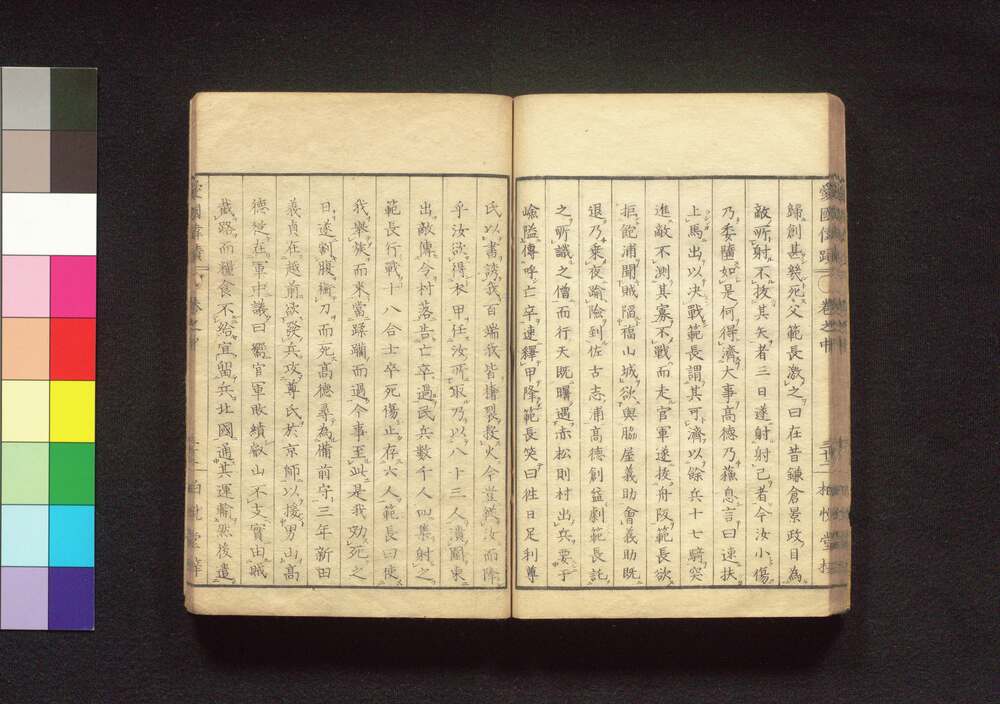 歸創甚幾死父範長激之曰在昔鎌倉景政目為
敵所射不拔其矢者三日遂射射己者今汝小傷
乃委隨如是何得濟大事高德乃蘓息言曰速扶
上馬出以决戰範長謂其可濟以餘兵十七騎突
進敵不測其寡不戰而走官軍遂拔舟阪範長欲
拒飽浦聞賊陷福山城欲與脇屋義助會義助既
退乃乗夜踰險到佐古志浦高德創益劇範長託
之所識之僧而行天既曙遇赤松則村出兵要于
嶮隘傳呼亡卒速釋甲降範長笑曰徃日足利尊
氏以書誘我百端我皆撦裂投火今豈從汝而降
乎汝欲得衣甲任汝所取乃以八十三人潰圍東
出敵傳令村落告亡卒過民兵數千人叫集射之
範長行戰十八合士卒死傷止存六人範長曰使
我舉族而來當蹂躪而過今事至此是我効死之
日遂割腹銜刀而死高德尋為備前守三年新田
義貞在越前欲發兵攻尊氏於京師以援男山高
德從在軍中議曰嚮官軍敗績叡山不支實由賊
截路而糧食不給宜留兵北國通其運輸然後遣
愛國偉績 卷之中